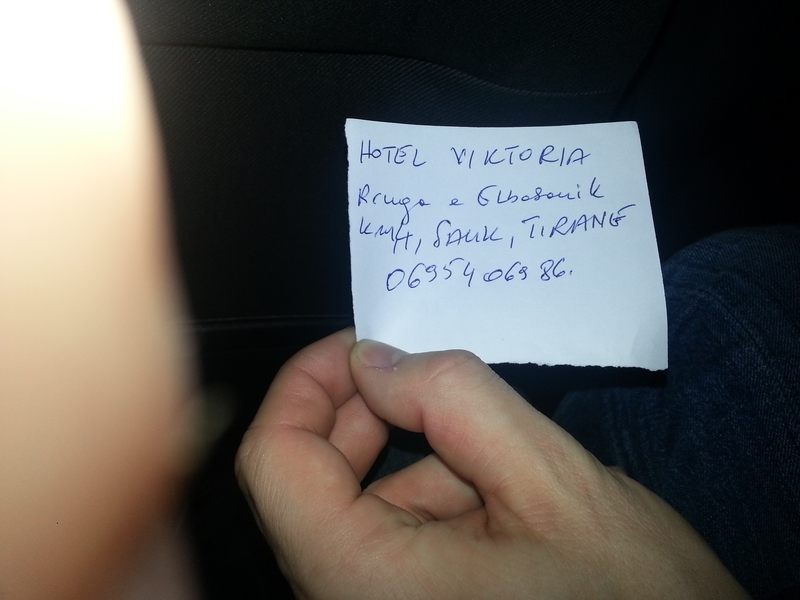 HOTEL VIKTORIA
Rruga e Elbasanik
KM4, SAUK, TIRANË
0695406986.